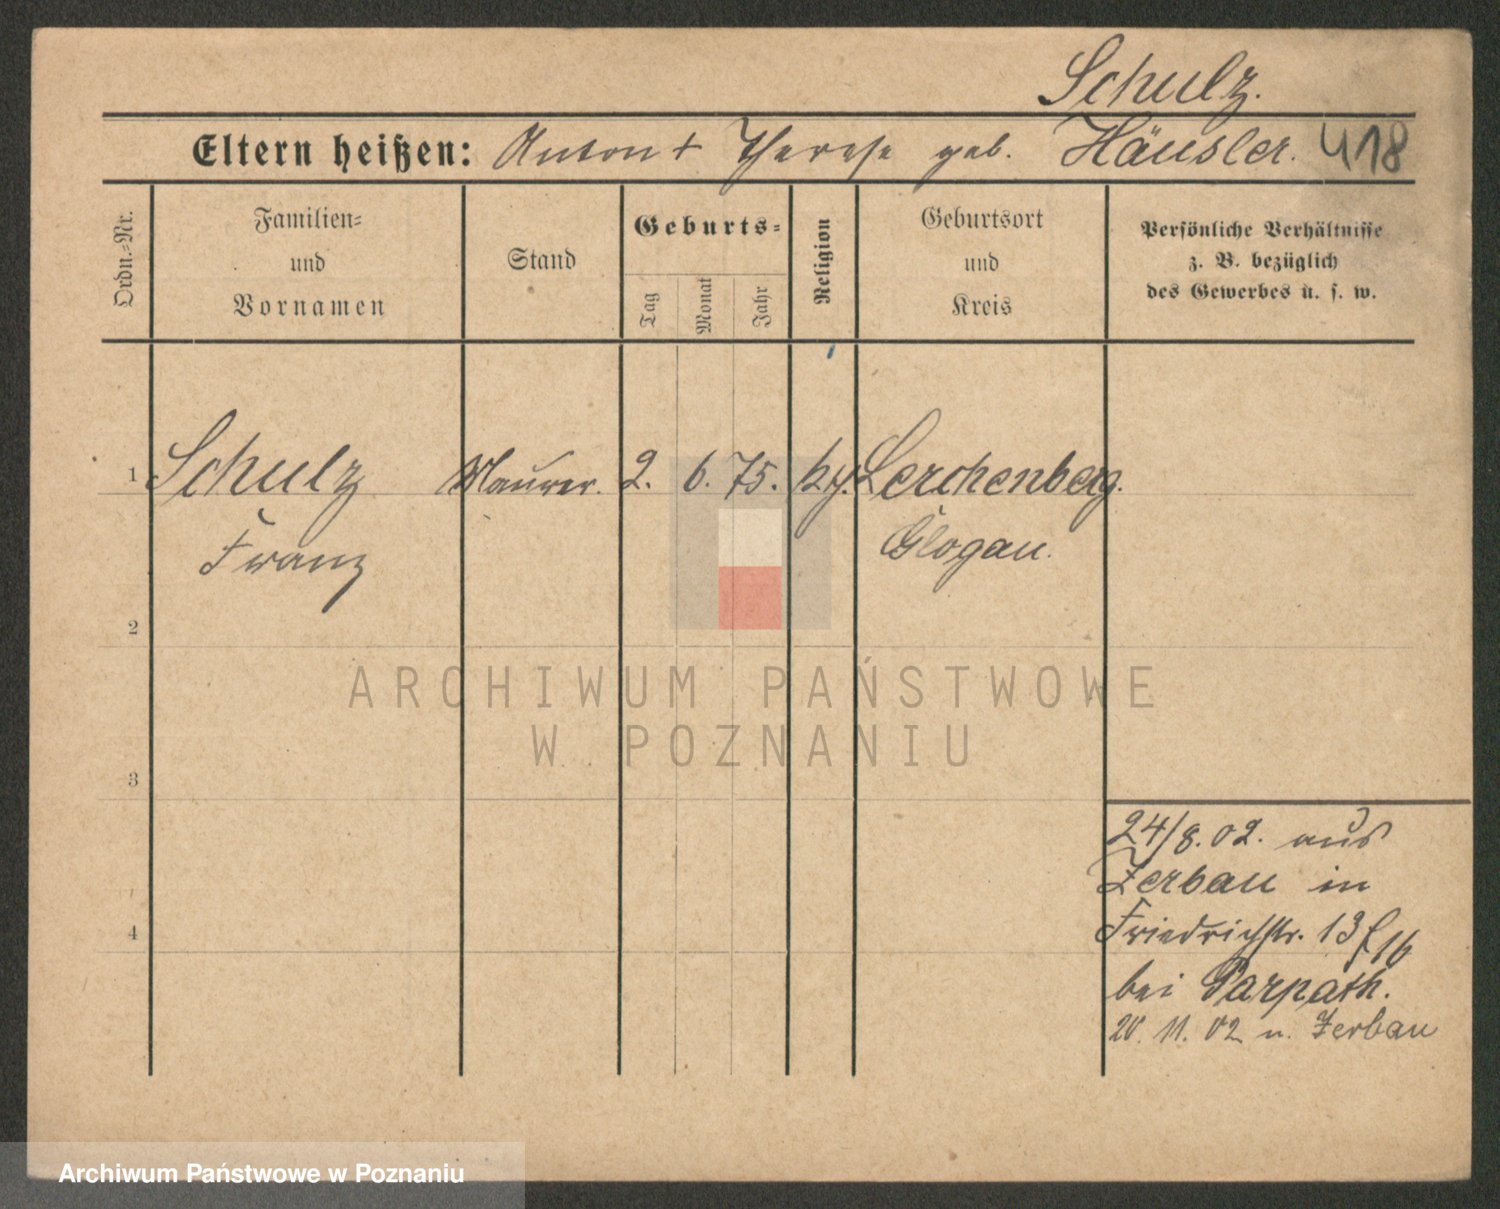 Schulz.
Eltern heißen: Anton + Therese geb. Häusler. 418
Ordn.=Nr.
Familien=
und
Vornamen
Stand
Geburts=
Tag
Monat
Jahr
Religion
Geburtsort
und
Kreis
Persönliche Verhältnisse
z. B. bezüglich
des Gewerbes u. s. w.
1 Schulz Maurer. 2. 6. 75. Lerchenberg.
Franz Glogau.
2
3
4
24/8.02. aus
Zerbau in
Friedrichstr. 13
bei Parpath.
20. 11. 02 n. Zerbau
ARCHIWUM PAŃSTWOWE
W POZNANIU
Archiwum Państwowe w Poznaniu